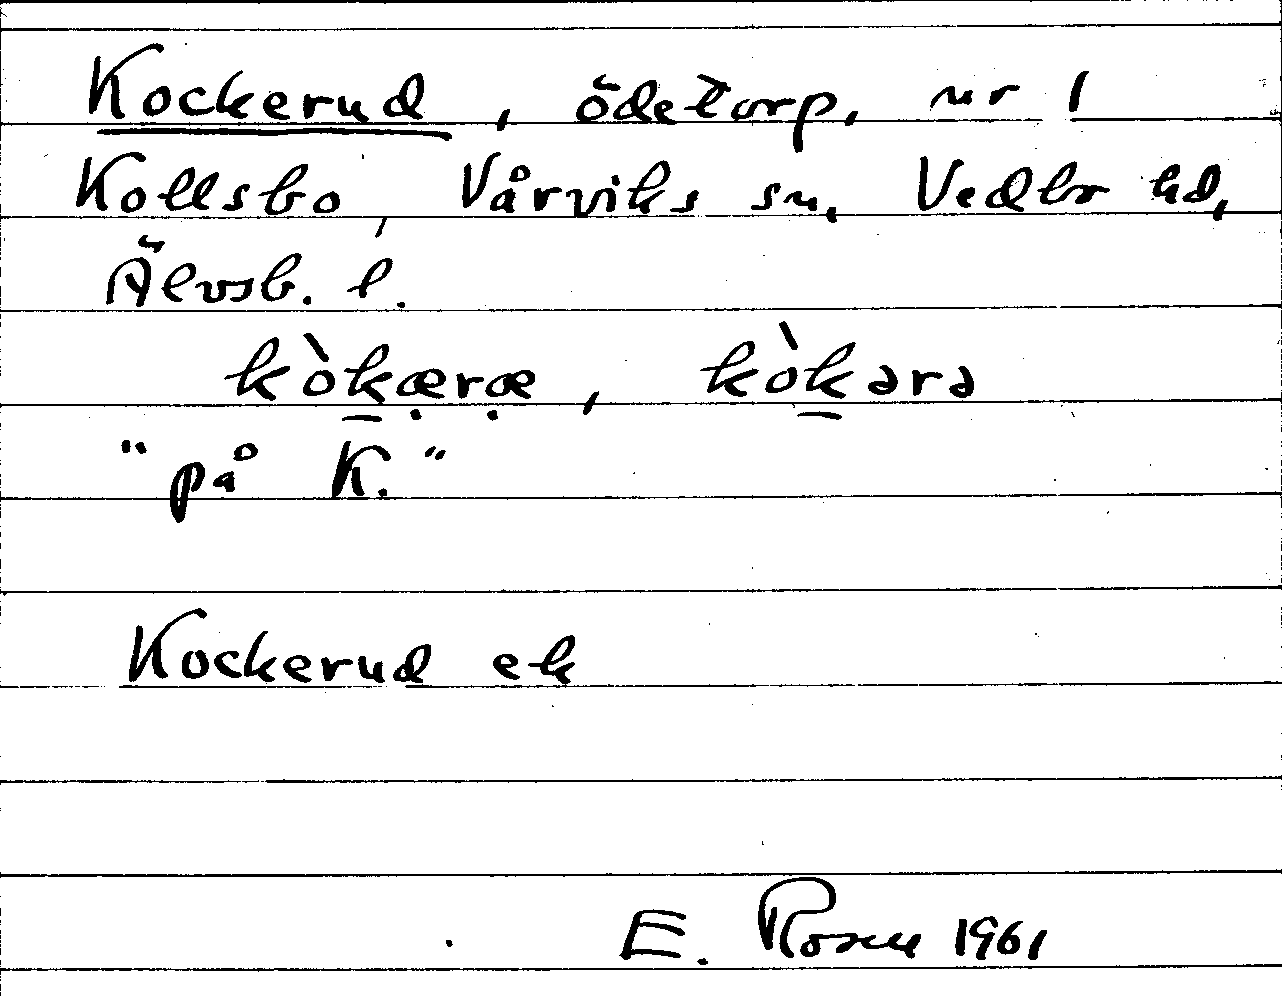 Kockerud, ödetorp, nr 1
Kollsbo, Vårviks sn, Vedbo hd,
Älvsb. l.
kòk̲æ̣ræ̣, kòk̲ərə
"på K."
Kockerud ek
E. Rosell 1961